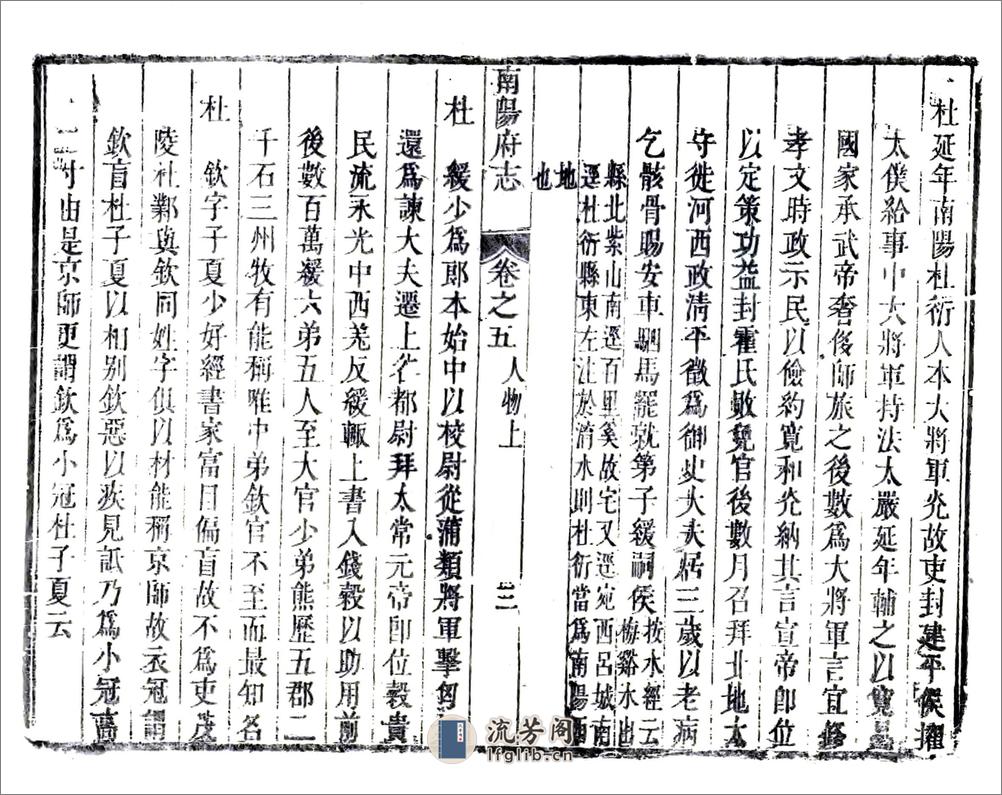 杜延年南陽杜衍人本大將軍光故吏封建平侯擢
太僕給事中大將軍持法太嚴延年輔之以寬見
國家承武帝奢侈師旅之後數為大將軍言宜修
孝文時政示民以儉約寬和光納其言宣帝即位
以定策功益封霍氏敗免官後數月召拜北地太
守徙河西政清平徵為御史大夫居三歲以老病
乞骸骨賜安車駟馬罷就第子緩嗣侯按水經云
梅谿水出
縣北紫山南逕百里奚故宅又逕宛西呂城南
逕杜衍縣東左注於淯水則杜衍當為南陽西
地
也
南陽府志 卷之五 人物上 三
杜 緩少為郎本始中以校尉從蒲類將軍擊匈
還為諫大夫遷上谷都尉拜太常元帝即位穀貴
民流永光中西羌反緩輙上書入錢穀以助用前
後數百萬緩六弟五人至大官少弟熊歷五郡二
千石三州牧有能稱唯中弟欽官不至而最知名
杜 欽字子夏少好經書家富目偏盲故不為吏茂
陵杜鄴與欽同姓字俱以材能稱京師故衣冠謂
欽盲杜子夏以相別欽惡以疾見詆乃為小冠高
二寸由是京師更謂欽為小冠杜子夏云
流芳阁
lfglib.cn